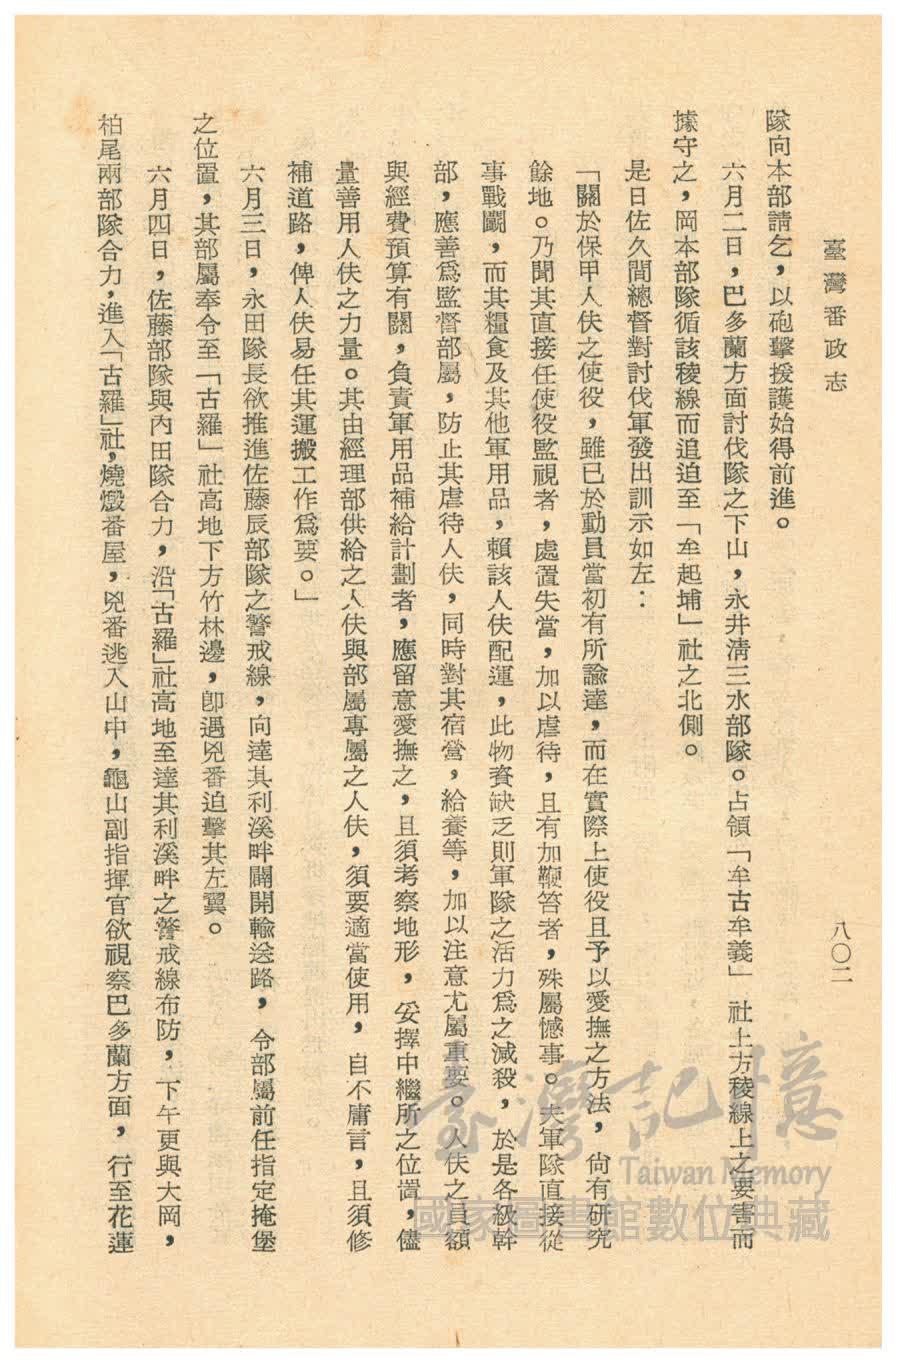 臺灣番政志
八〇二
隊向本部請乞，以砲擊援護始得前進。
六月二日，巴多蘭方面討伐隊之下山，永井淸三水部隊。占領「牟古牟義」社上方稜線上之要害而
據守之，岡本部隊循該稜線而追迫至「牟起埔」社之北側。
是日佐久間總督對討伐軍發出訓示如左：
「關於保甲人伕之使役，雖已於動員當初有所諭達，而在實際上使役且予以愛撫之方法，尙有研究
餘地。乃聞其直接任使役監視者，處置失當，加以虐待，且有加鞭笞者，殊屬憾事。夫軍隊直接從
事戰鬪，而其糧食及其他軍用品，賴該人伕配運，此物資缺乏則軍隊之活力爲之減殺，於是各級幹
部，應善爲監督部屬，防止其虐待人伕，同時對其宿營，給養等，加以注意尤屬重要。人伕之員額
與經費預算有關，負責軍用品補給計劃者，應留意愛撫之，且須考察地形，妥擇中繼所之位置，儘
量善用人伕之力量。其由經理部供給之人伕與部屬專屬之人伕，須要適當使用，自不庸言，且須修
補道路，俾人伕易任其運搬工作爲要。」
六月三日，永田隊長欲推進佐藤辰部隊之警戒線，向達其利溪畔闢開輸送路，令部屬前任指定掩堡
之位置，其部屬奉令至「古羅」社高地下方竹林邊，卽遇兇番迫擊其左翼。
六月四日，佐藤部隊與內田隊合力，沿「古羅」社高地至達其利溪畔之警戒線布防，下午更與大岡，
柏尾兩部隊合力，進入「古羅」社，燒燬番屋，兇番逃入山中，龜山副指揮官欲視察巴多蘭方面，行至花蓮
臺灣記憶
Taiwan Memory
國家圖書館數位典藏